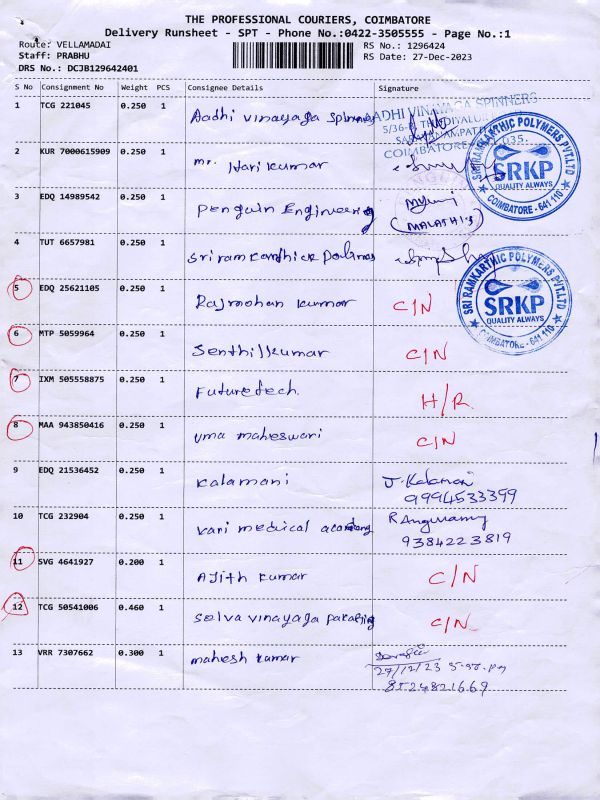 THE PROFESSIONAL COURIERS, COIMBATORE
Delivery Runsheet - SPT - Phone No.:0422-3505555 - Page No.:1
Route: VELLAMADAI RS No.: 1296424
Staff: PRABHU RS Date: 27-Dec-2023
DRS No.: DCJB129642401
S No Consignment No Weight PCS Consignee Details Signature
1 TCG 221045 0.250 1 Aadhi vinayaga spinners
AADHI VINAYAGA SPINNERS
COIMBATORE 035.
2 KUR 7000615909 0.250 1 mr. Hari kumar
SRI RAMKARTHIC POLYMERS PVT.LTD
SRKP
QUALITY ALWAYS
COIMBATORE - 641 110
3 EDQ 14989542 0.250 1 Penguin Engineering
(MALATHI.S)
4 TUT 6657981 0.250 1 Sri ram Karthick Polimas
SRI RAMKARTHIC POLYMERS PVT.LTD
SRKP
QUALITY ALWAYS
COIMBATORE - 641 110
5 EDQ 25621105 0.250 1 Rajmohan kumar C/N
6 MTP 5059964 0.250 1 Senthilkumar C/N
7 IXM 505558875 0.250 1 Futuretech. H/R.
8 MAA 943850416 0.250 1 uma maheswari C/N
9 EDQ 21536452 0.250 1 Kalamani J. Kalamani
9994533399
10 TCG 232904 0.250 1 Kari medical
9384223819
11 SVG 4641927 0.200 1 Ajith kumar C/N
12 TCG 50541006 0.460 1 Selva vinayaga C/N
13 VRR 7307662 0.300 1 mahesh kumar
27/12/23
8524821669